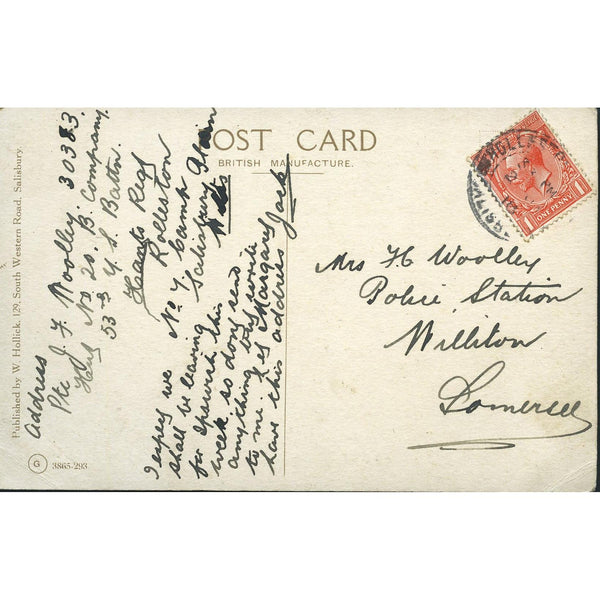 POST CARD
BRITISH MANUFACTURE.
Address
Pte J. F Woolley. 30383
Hut No 20. B. Company
53rd Y. S. Battn.
Hants Regt
Rolleston
No 7 Camp
Salisbury Plain
Wilts
I expect we
shall be leaving
for Ipswich this
week so dont send
anything but write
to me. Let Margaret
have this address Jack
Mrs F C Woolley
Police Station
Williton
Somerset
ONE PENNY
1
1
Published by W. Hollick, 129, South Western Road, Salisbury.
G 3865-293